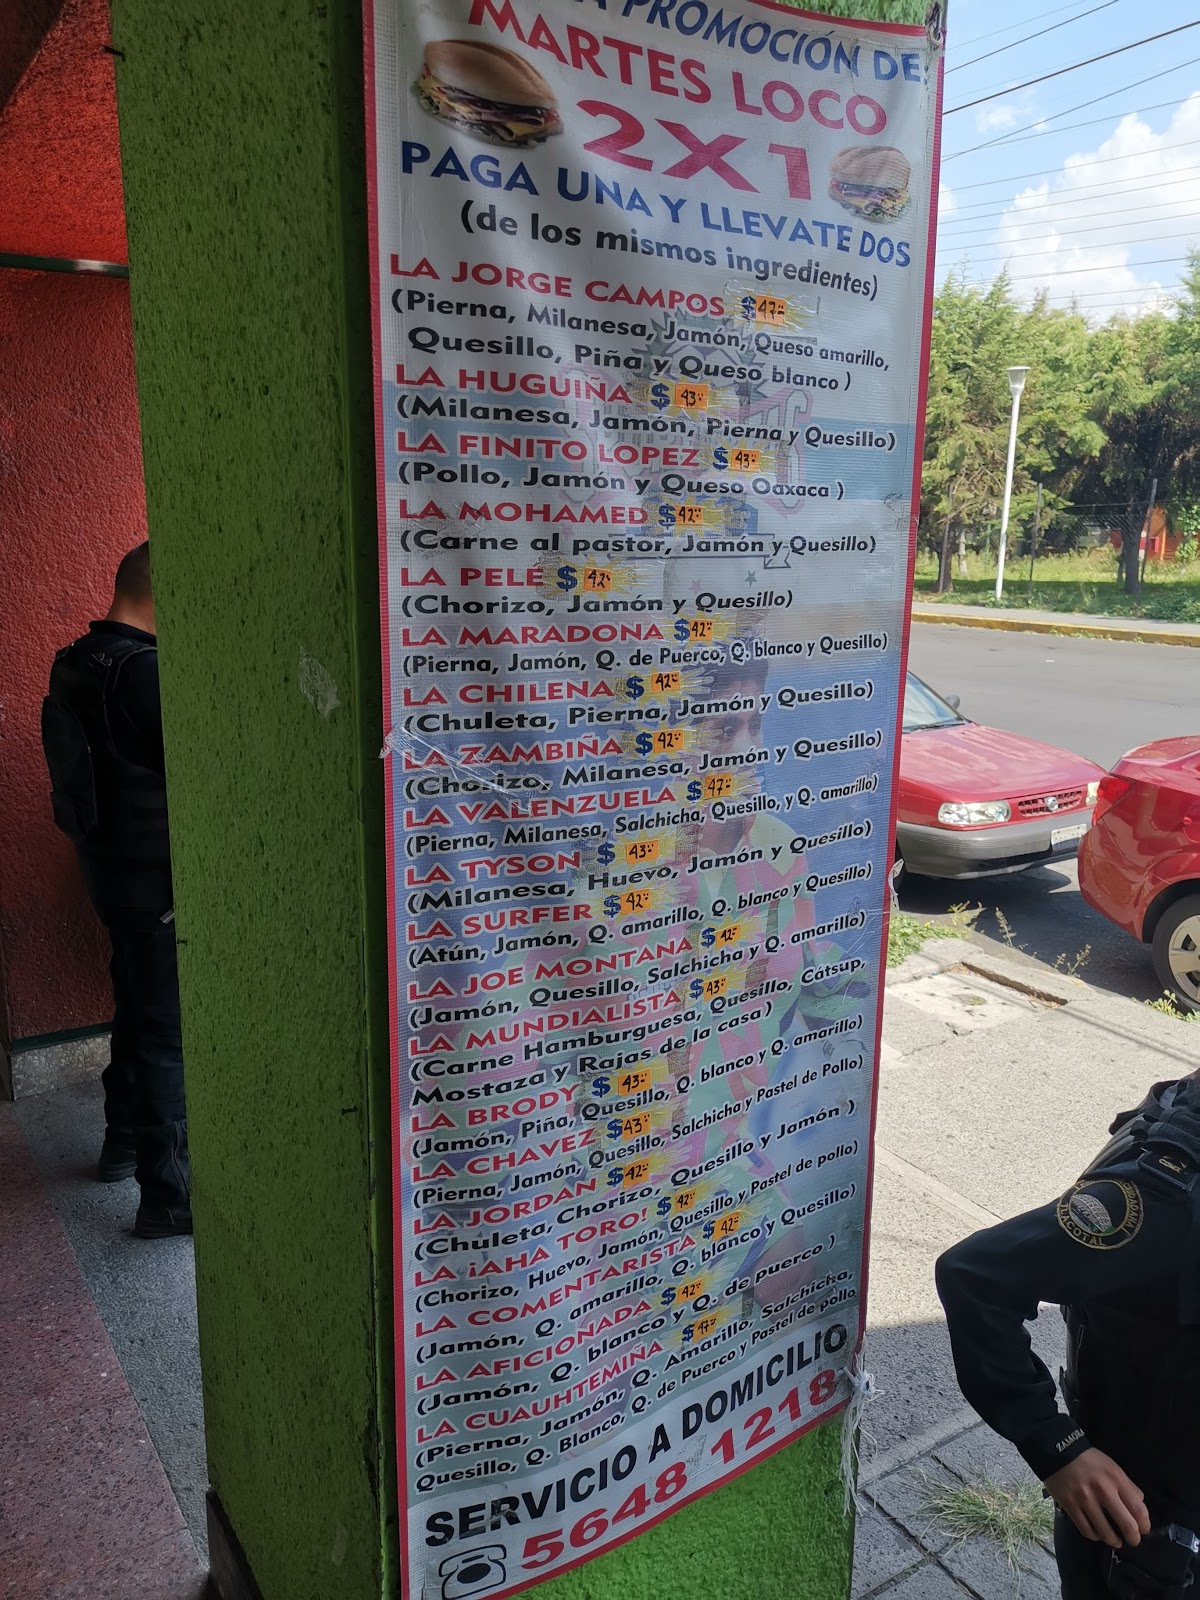 A PROMOCIÓN DE
MARTES LOCO
2X1
PAGA UNA Y LLEVATE DOS
(de los mismos ingredientes)
LA JORGE CAMPOS $47
(Pierna, Milanesa, Jamón, Queso amarillo,
Quesillo, Piña y Queso blanco )
LA HUGUIÑA $ 43
(Milanesa, Jamón, Pierna y Quesillo)
LA FINITO LOPEZ $ 43
(Pollo, Jamón y Queso Oaxaca )
LA MOHAMED $42
(Carne al pastor, Jamón y Quesillo)
LA PELE $ 42
(Chorizo, Jamón y Quesillo)
LA MARADONA $42
(Pierna, Jamón, Q. de Puerco, Q. blanco y Quesillo)
LA CHILENA $ 42
(Chuleta, Pierna, Jamón y Quesillo)
LA ZAMBIÑA $42
(Chorizo, Milanesa, Jamón y Quesillo)
LA VALENZUELA $ 47
(Pierna, Milanesa, Salchicha, Quesillo, y Q. amarillo)
LA TYSON $ 43
(Milanesa, Huevo, Jamón y Quesillo)
LA SURFER $ 42
(Atún, Jamón, Q. amarillo, Q. blanco y Quesillo)
LA JOE MONTANA $ 42
(Jamón, Quesillo, Salchicha y Q. amarillo)
LA MUNDIALISTA $ 43
(Carne Hamburguesa, Quesillo, Cátsup,
Mostaza y Rajas de la casa )
LA BRODY $ 43
(Jamón, Piña, Quesillo, Q. blanco y Q. amarillo)
LA CHAVEZ $43
(Pierna, Jamón, Quesillo, Salchicha y Pastel de Pollo)
LA JORDAN $42
(Chuleta, Chorizo, Quesillo y Jamón )
LA ¡AHA TORO! $ 42
(Chorizo, Huevo, Jamón, Quesillo y Pastel de pollo)
LA COMENTARISTA $ 42
(Jamón, Q. amarillo, Q. blanco y Quesillo)
LA AFICIONADA $ 42
(Jamón, Q. blanco y Q. de puerco )
LA CUAUHTEMIÑA $ 47
(Pierna, Jamón, Q. Amarillo, Salchicha,
Quesillo, Q. Blanco, Q. de Puerco y Pastel de pollo
SERVICIO A DOMICILIO
5648 1218
ZAMORA